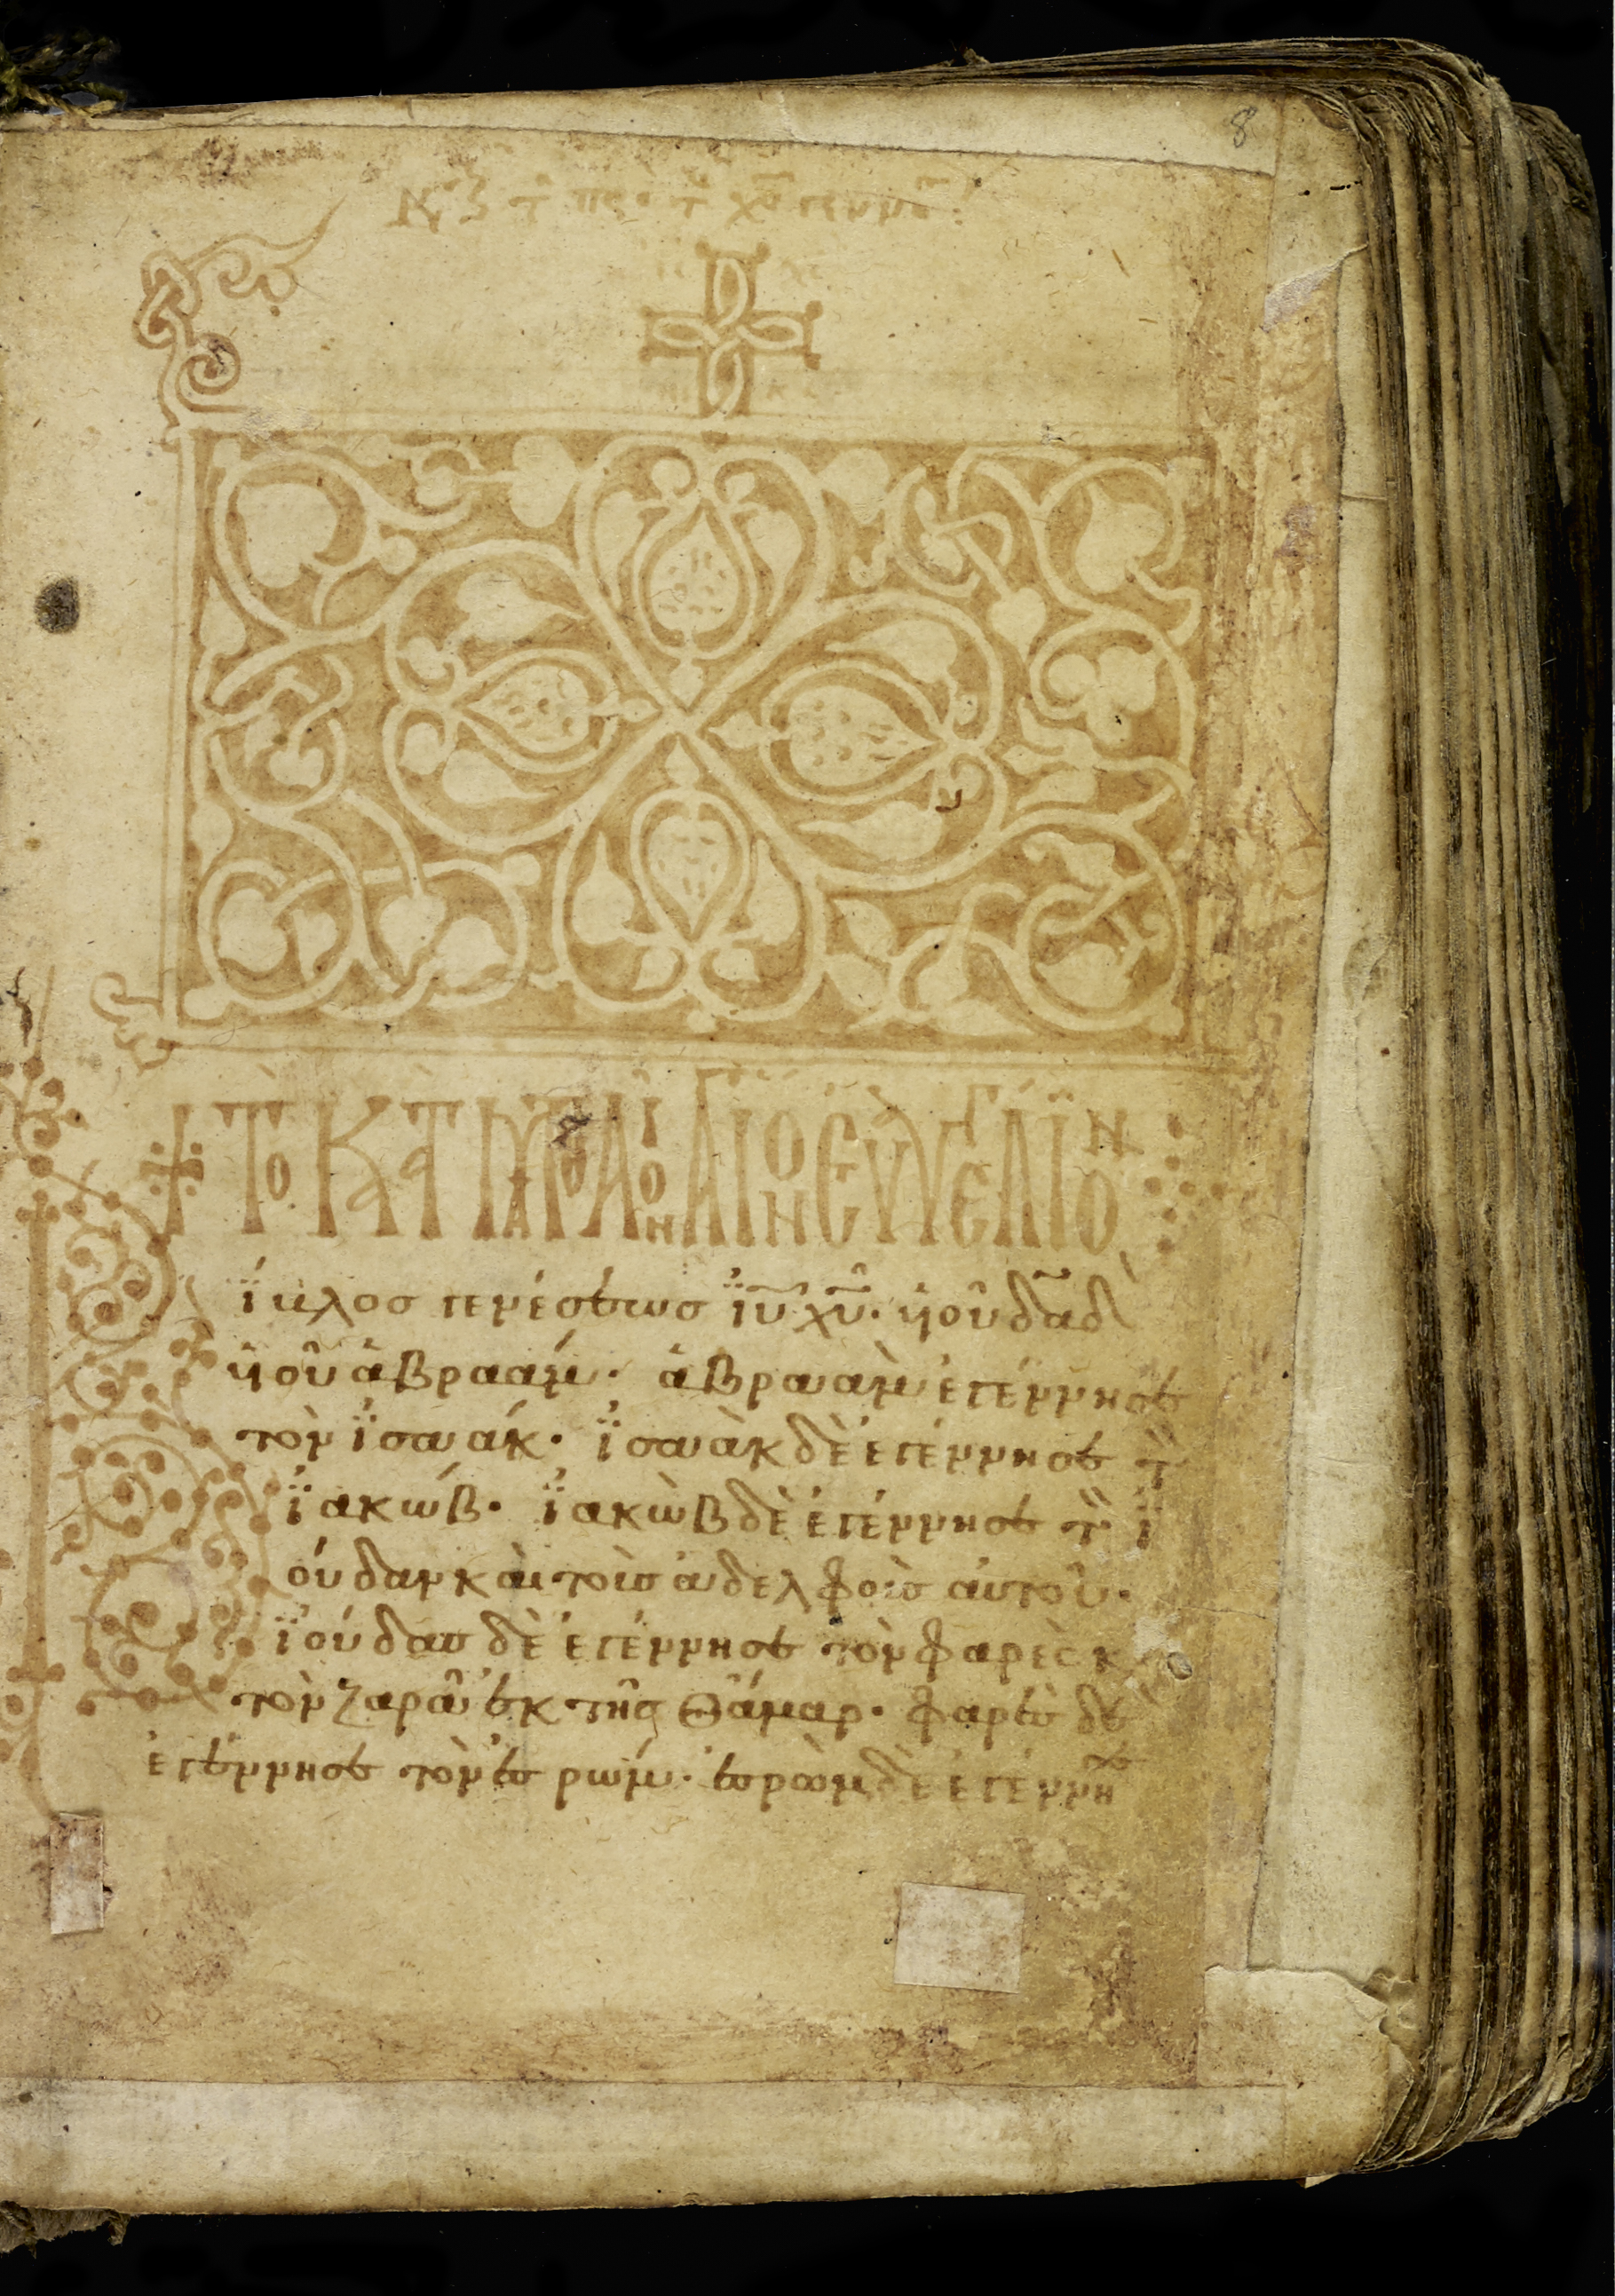 8
Κυ πρὸ τ χυ γεννη
ΙC ΧC
ΤΟ ΚΑΤ ΜΑΤΘΑΙΟΝ ΑΓΙΟΝ ΕΥΑΓΓΕΛΙΟΝ
ΐβλος γενέσεως ϊυ χυ· ὑοῦ δαδ
ὑοῦ ἀβραάμ· ἀβραὰμ ἐγέννησε
τὸν ϊσαάκ· ϊσαὰκ δὲ ἐγέννησε τ
ϊακώβ· ϊακὼβ δὲ ἐγέννησε τ ϊ
ούδαν καὶ τοὺς ἀδελφοὺς αὐτοῦ·
ϊούδας δὲ ἐγέννησε τὸν φαρὲς κ
τὸν ζαρᾶ ἐκ τῆς θάμαρ· φαρὲς δὲ
ἐγέννησε τὸν ἐσρώμ· ἐσρὼμ δὲ ἐγέννη